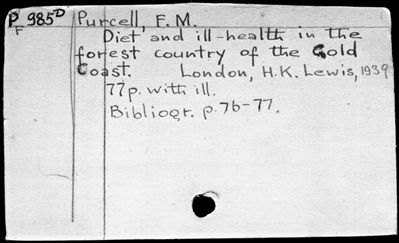 P 985D Purcell, F. M.
F
Diet and ill-health in the
forest country of the Gold
Coast. London, H.K. Lewis, 1939
77p. with ill.
Bibliogr. p. 76-77.